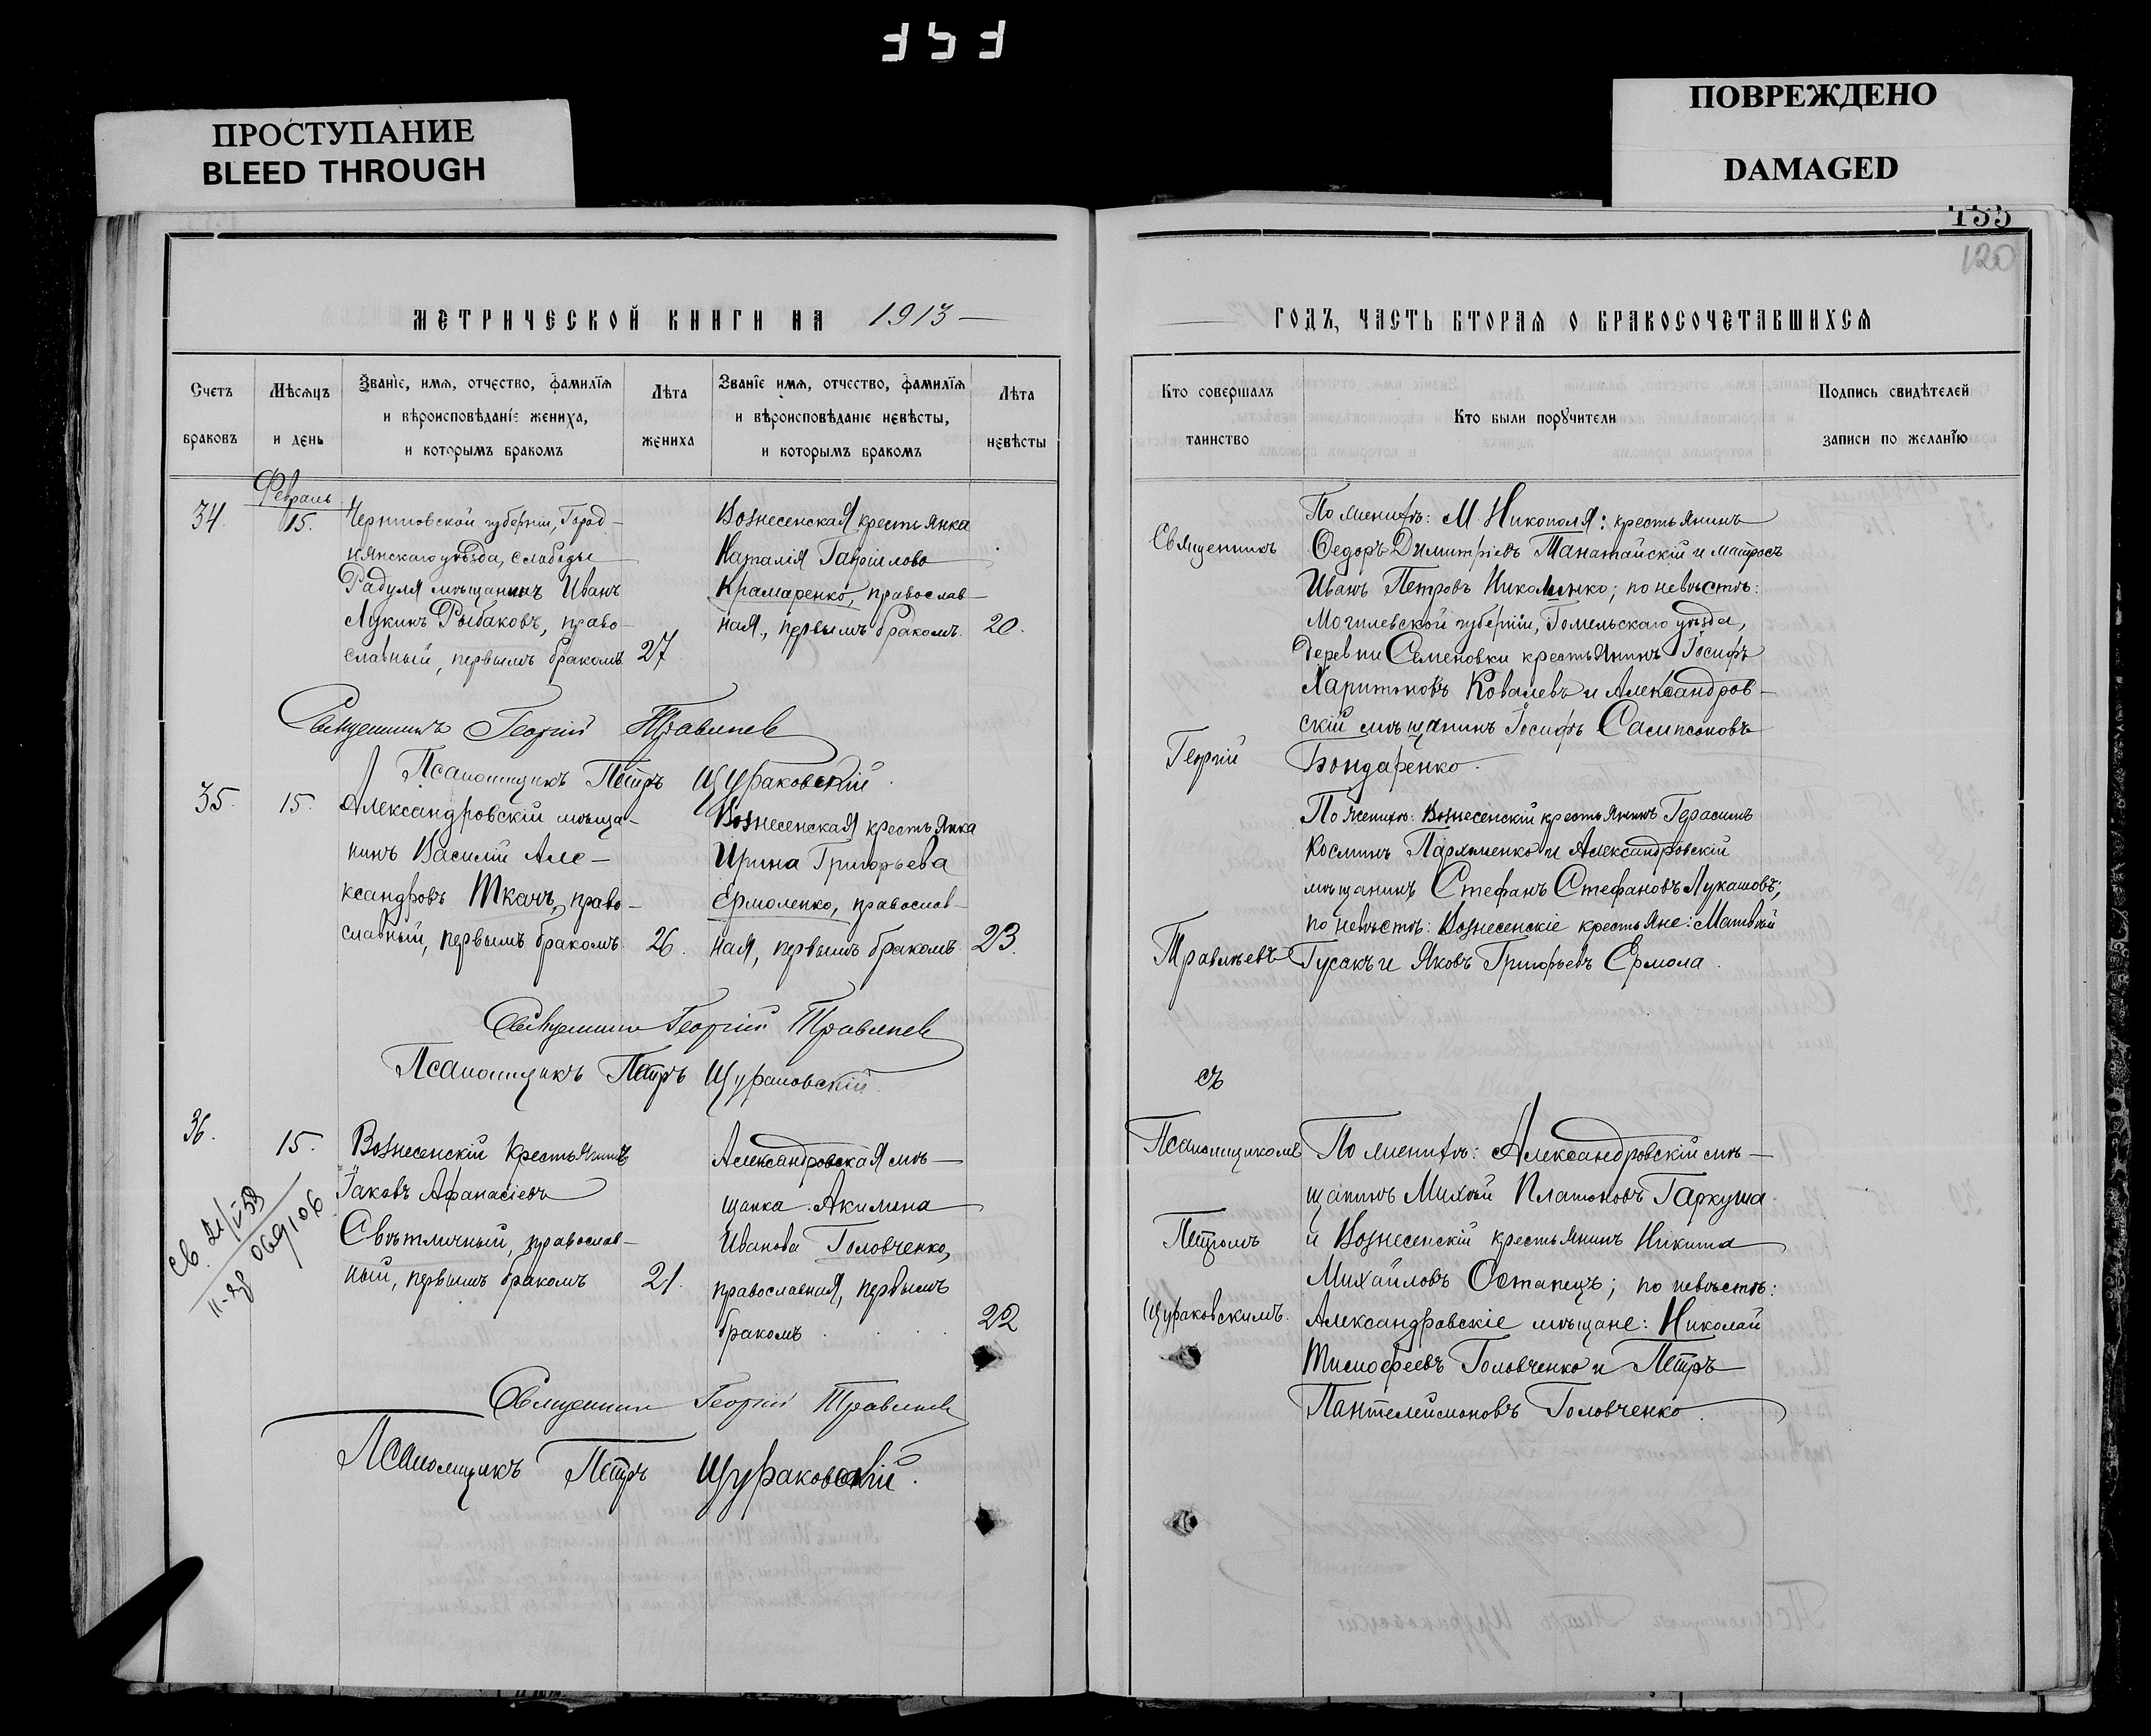 ПРОСТУПАНИЕ
BLEED THROUGH
ПОВРЕЖДЕНО
DAMAGED
120
МЕТРИЧЕСКОЙ КНИГИ НА 1913
ГОДЪ, ЧАСТЬ ВТОРАЯ О БРАКОСОЧЕТАВШИХСЯ
Счетъ браковъ
Мѣсяцъ и день
Званіе, имя, отчество, фамилія и вѣроисповѣданіе жениха, и которымъ бракомъ
Лѣта жениха
Званіе имя, отчество, фамилія и вѣроисповѣданіе невѣсты, и которымъ бракомъ
Лѣта невѣсты
Кто совершалъ таинство
Кто были поручители
Подпись свидѣтелей записи по желанію
Февраль
34. 15.
Черниговской губерніи, Город-
нянскаго уѣзда, слободы
Радуля мѣщанинъ Иванъ
Лукинъ Рыбаковъ, право-
славный, первымъ бракомъ 27
Вознесенская крестьянка
Наталія Гавріилова
Крамаренко, православ-
ная, первымъ бракомъ. 20.
Священникъ Георгій Травинев
Псаломщикъ Петръ Щураковскій.
35. 15.
Александровскій мѣща-
нинъ Василій Але-
ксандровъ Ткачъ, право-
славный, первымъ бракомъ. 26.
Вознесенская крестьянка
Ирина Григорьева
Ермоленко, православ-
ная, первымъ бракомъ. 23.
Священникъ Георгій Травинев
Псаломщикъ Петръ Щураковскій.
36. 15.
Вознесенскій крестьянинъ
Іаковъ Афанасіевъ
Свѣтличный, православ-
ный, первымъ бракомъ 21.
Александровская мѣ-
щанка Акилина
Иванова Головченко,
православная, первымъ
бракомъ 22
Священникъ Георгій Травинев
Псаломщикъ Петръ Щураковскій.
Священникъ
Георгій
съ
Псаломщикомъ
Петромъ
Щураковскимъ.
По женихѣ: М. Никополя: крестьянинъ
Ѳедоръ Димитріевъ Танатайскій и матросъ
Иванъ Петровъ; по невѣстѣ:
Могилевской губерніи, Гомельскаго уѣзда,
деревни Семеновки крестьянинъ Іосифъ
Харитоновъ Ковалевъ и Александров-
скій мѣщанинъ Іосифъ Сампсоновъ
Бондаренко.
По женихѣ: Вознесенскій крестьянинъ Герасимъ
Косминъ Пархоменко и Александровскій
мѣщанинъ Стефанъ Стефановъ Лукашовъ;
по невѣстѣ: Вознесенскіе крестьяне: Матвѣй
Гусакъ и Яковъ Григорьевъ Ермола.
По женихѣ: Александровскій мѣ-
щанинъ Михѣй Платоновъ Гаркуша
и Вознесенскій крестьянинъ Никита
Михайловъ Остапецъ; по невѣстѣ:
Александровскіе мѣщане: Николай
Тимофеевъ Головченко и Петръ
Пантелеимоновъ Головченко.